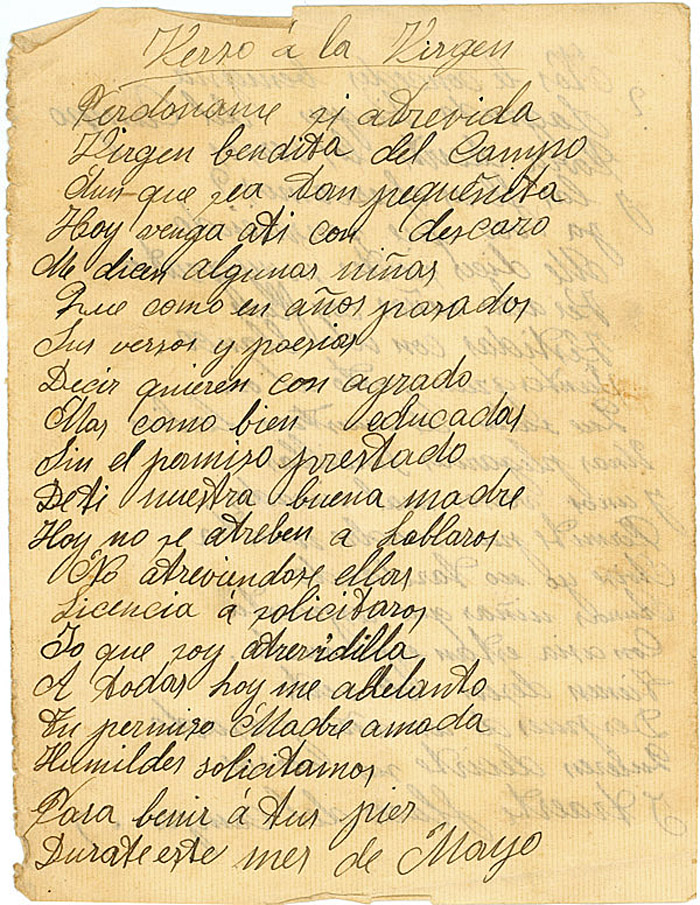 Verso á la Virgen
Perdoname si atrevida
Virgen bendita del Campo
Aun que sea tan pequeñita
Hoy venga ati con descaro
Me dicen algunas niñas
Que como en años pasados
Sus versos y poesias
Decir quieren con agrado
Mas como bien educadas
Sin el permiso prestado
Deti nuestra buena madre
Hoy no se atreben a hablaros
No atreviendose ellas
Licencia á solicitaros
Yo que soy atrevidilla
A todas hoy me adelanto
Tu permiso Madre amada
Humildes solicitamos
Para benir á tus pies
Durateeste mes de Mayo